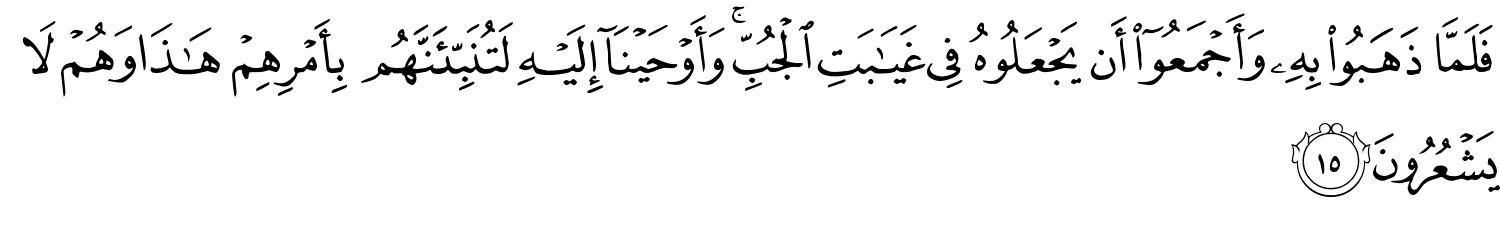 فَلَمَّا ذَهَبُوا۟ بِهِۦ وَأَجْمَعُوٓا۟ أَن يَجْعَلُوهُ فِى غَيَـٰبَتِ ٱلْجُبِّ ۚ وَأَوْحَيْنَآ إِلَيْهِ لَتُنَبِّئَنَّهُم بِأَمْرِهِمْ هَـٰذَا وَهُمْ لَا
يَشْعُرُونَ ١٥